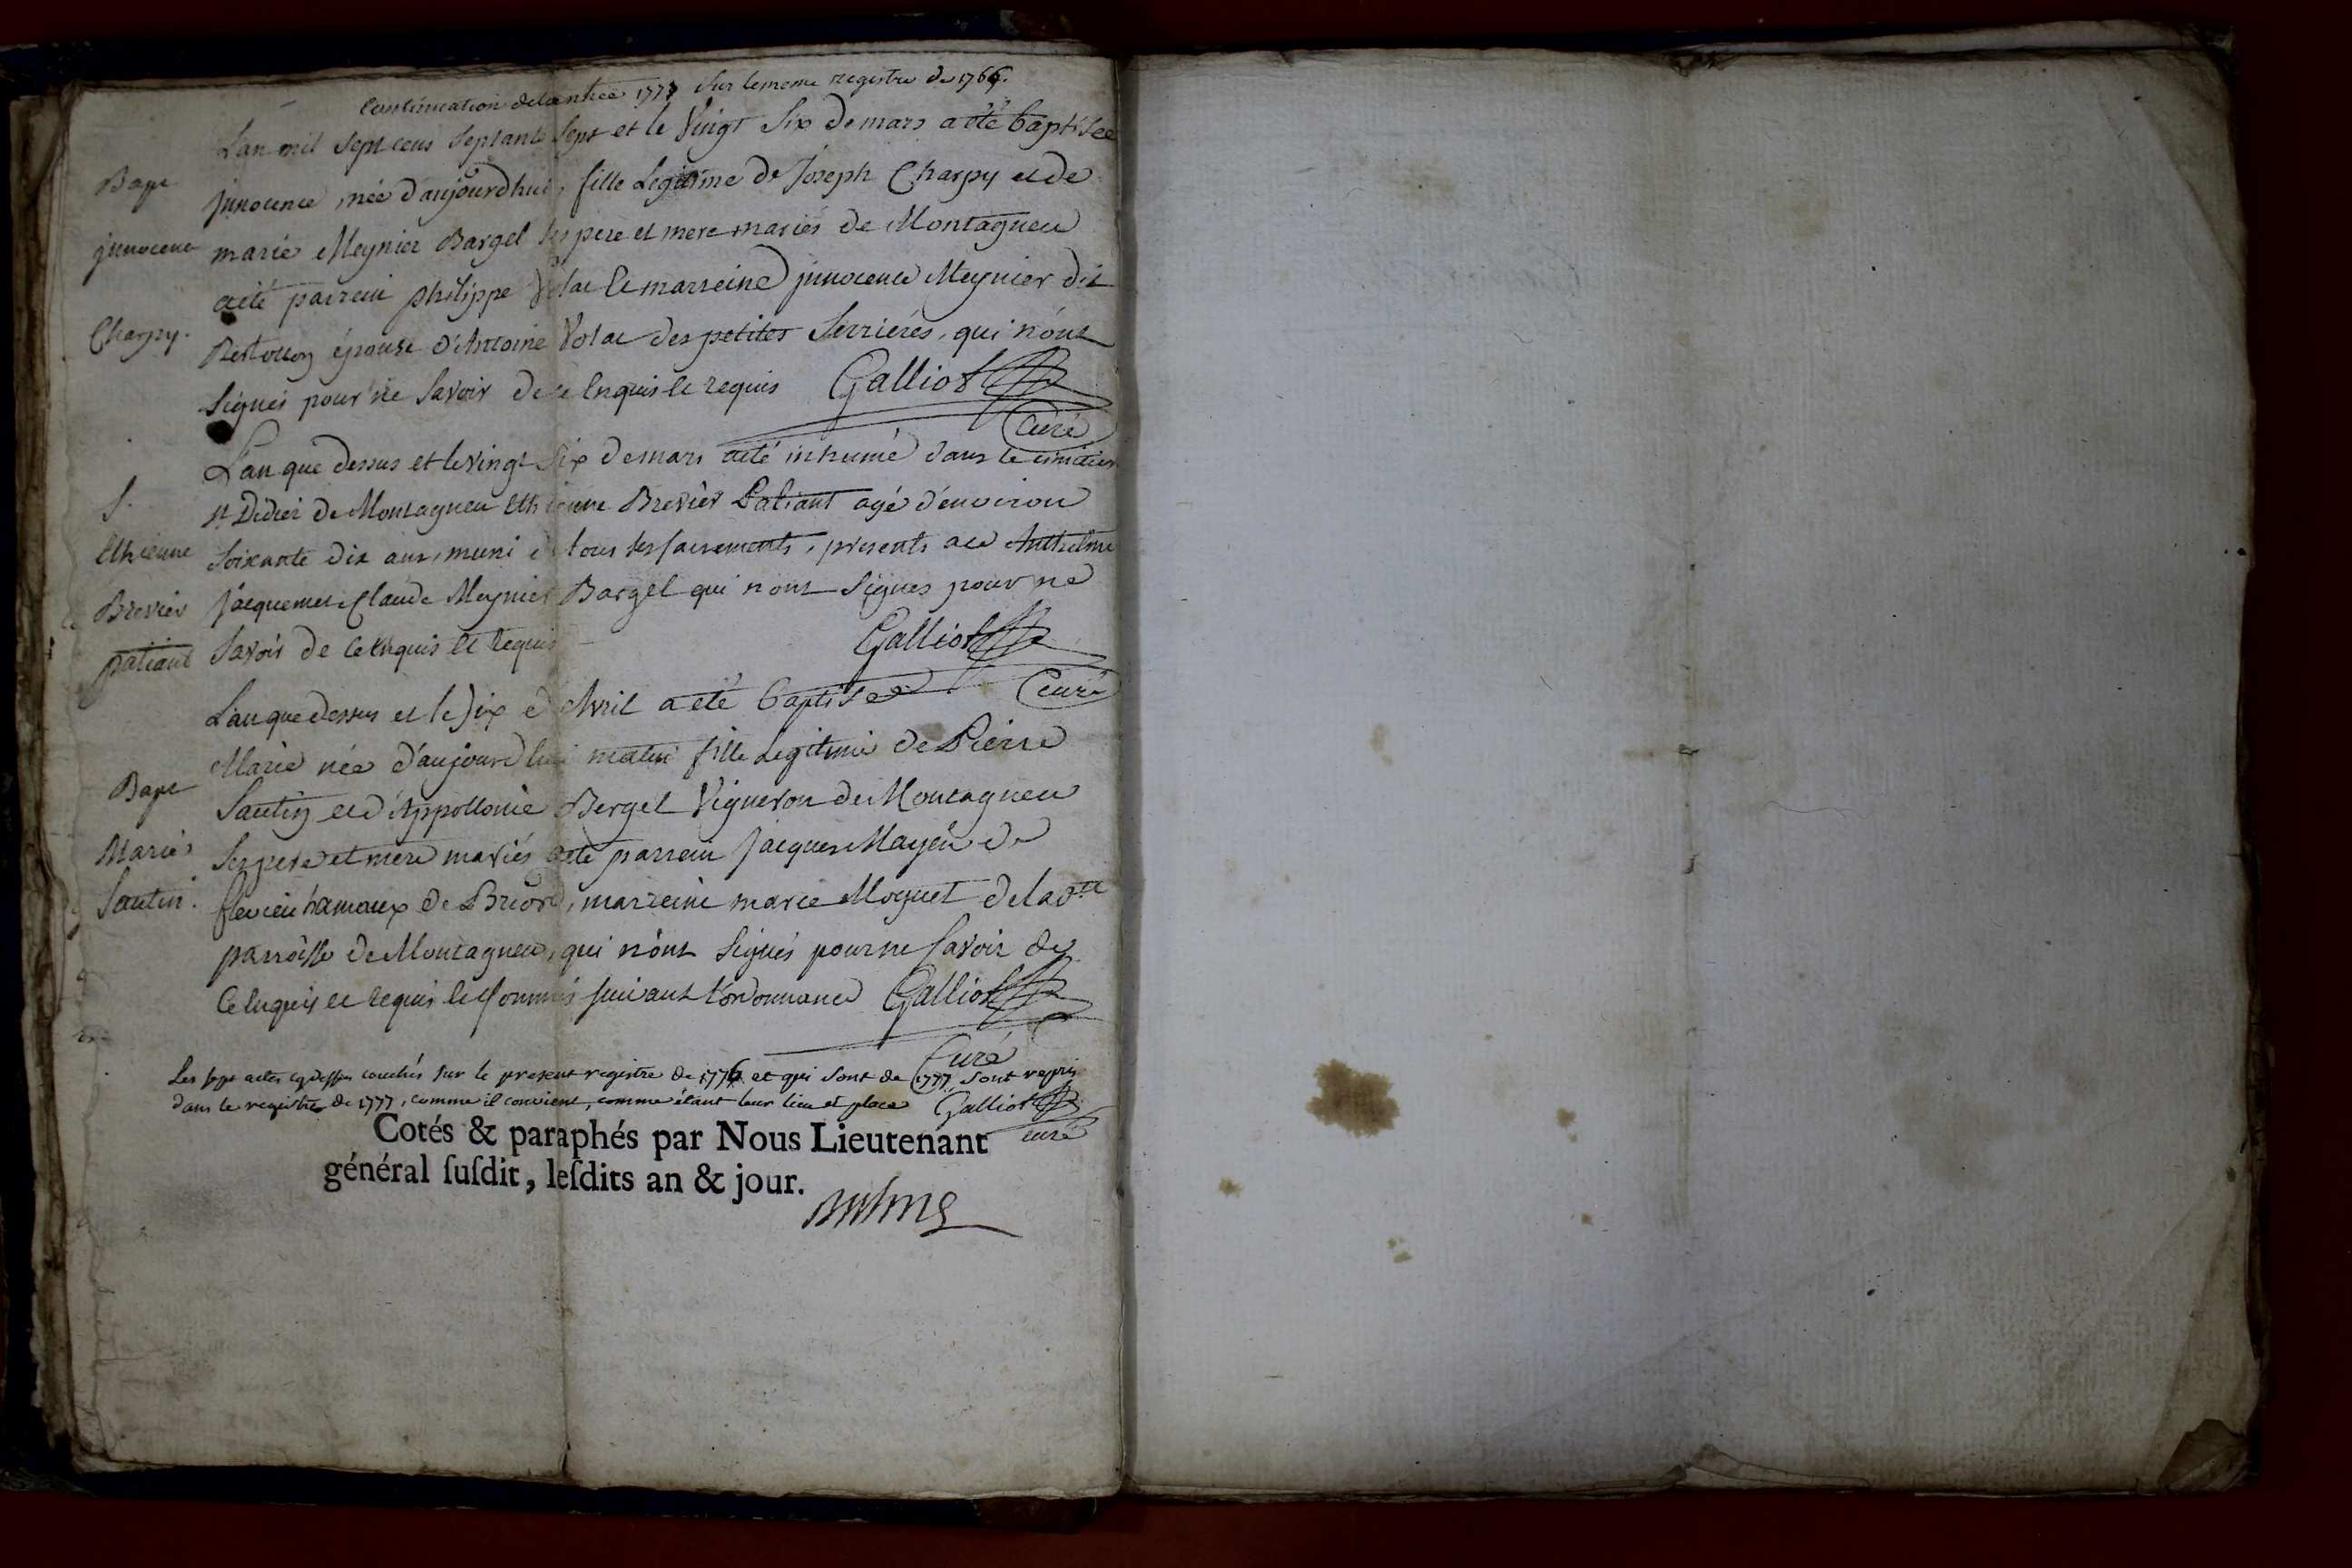 Continuation de lannée 1777 sur lememe registre de 1766.
Lan mil sept cens septante sept et le vingt six de mars a eté baptisée
Bapt
jnnocence, née d'aujourdhui, fille Legitime de Joseph Charpy et de
jnnocence
marie Meynier Bargel ses pere et mere mariés de Montagneu
a eté parrein philippe Volac et marreine jnnocence Meynier dit
Charpy.
épouse d'Antoine Volac des petites Serrieres, qui n'ont
signés pour ne savoir de ce Enquis et requis Galliot
Curé
L'an que dessus et le vingt six de mars a eté inhumé dans le cimetier
S.
st Didier de Montagneu Ethienne Brevier Patiant agé d'environ
Ethienne
soixante dix ans, muni de tous ses sacrements, presents a ce Anthelme
Brevier
jacquemet Claude Meynier Bargel qui n'ont signés pour ne
patiant
savoir de ce enquis et requis Galliot
Curé
L'an que dessus et le six d'Avril a eté baptisée
Marie née d'aujourd'hui matin fille Legitime de Pierre
Bapt
Santin et d'Appollonie Bergel Vigneron de Montagneu
Marie
ses pere et mere mariés a eté parrein jacques Mayen de
Santin.
flevieu hamaux de Briord, marreine marie Moguet de lad.tte
parroisse de Montagneu, qui n'ont signés pour ne savoir de
ce enquis et requis et sommés suivant l'ordonnance Galliot
Curé
Les sept actes cydessus couchés sur le present registre de 1776 et qui sont de 1777 sont repris
dans le registre de 1777, comme il convient, comme étant leur lieu et place Galliot
curé
Cotés & paraphés par Nous Lieutenant
général ſuſdit, leſdits an & jour.